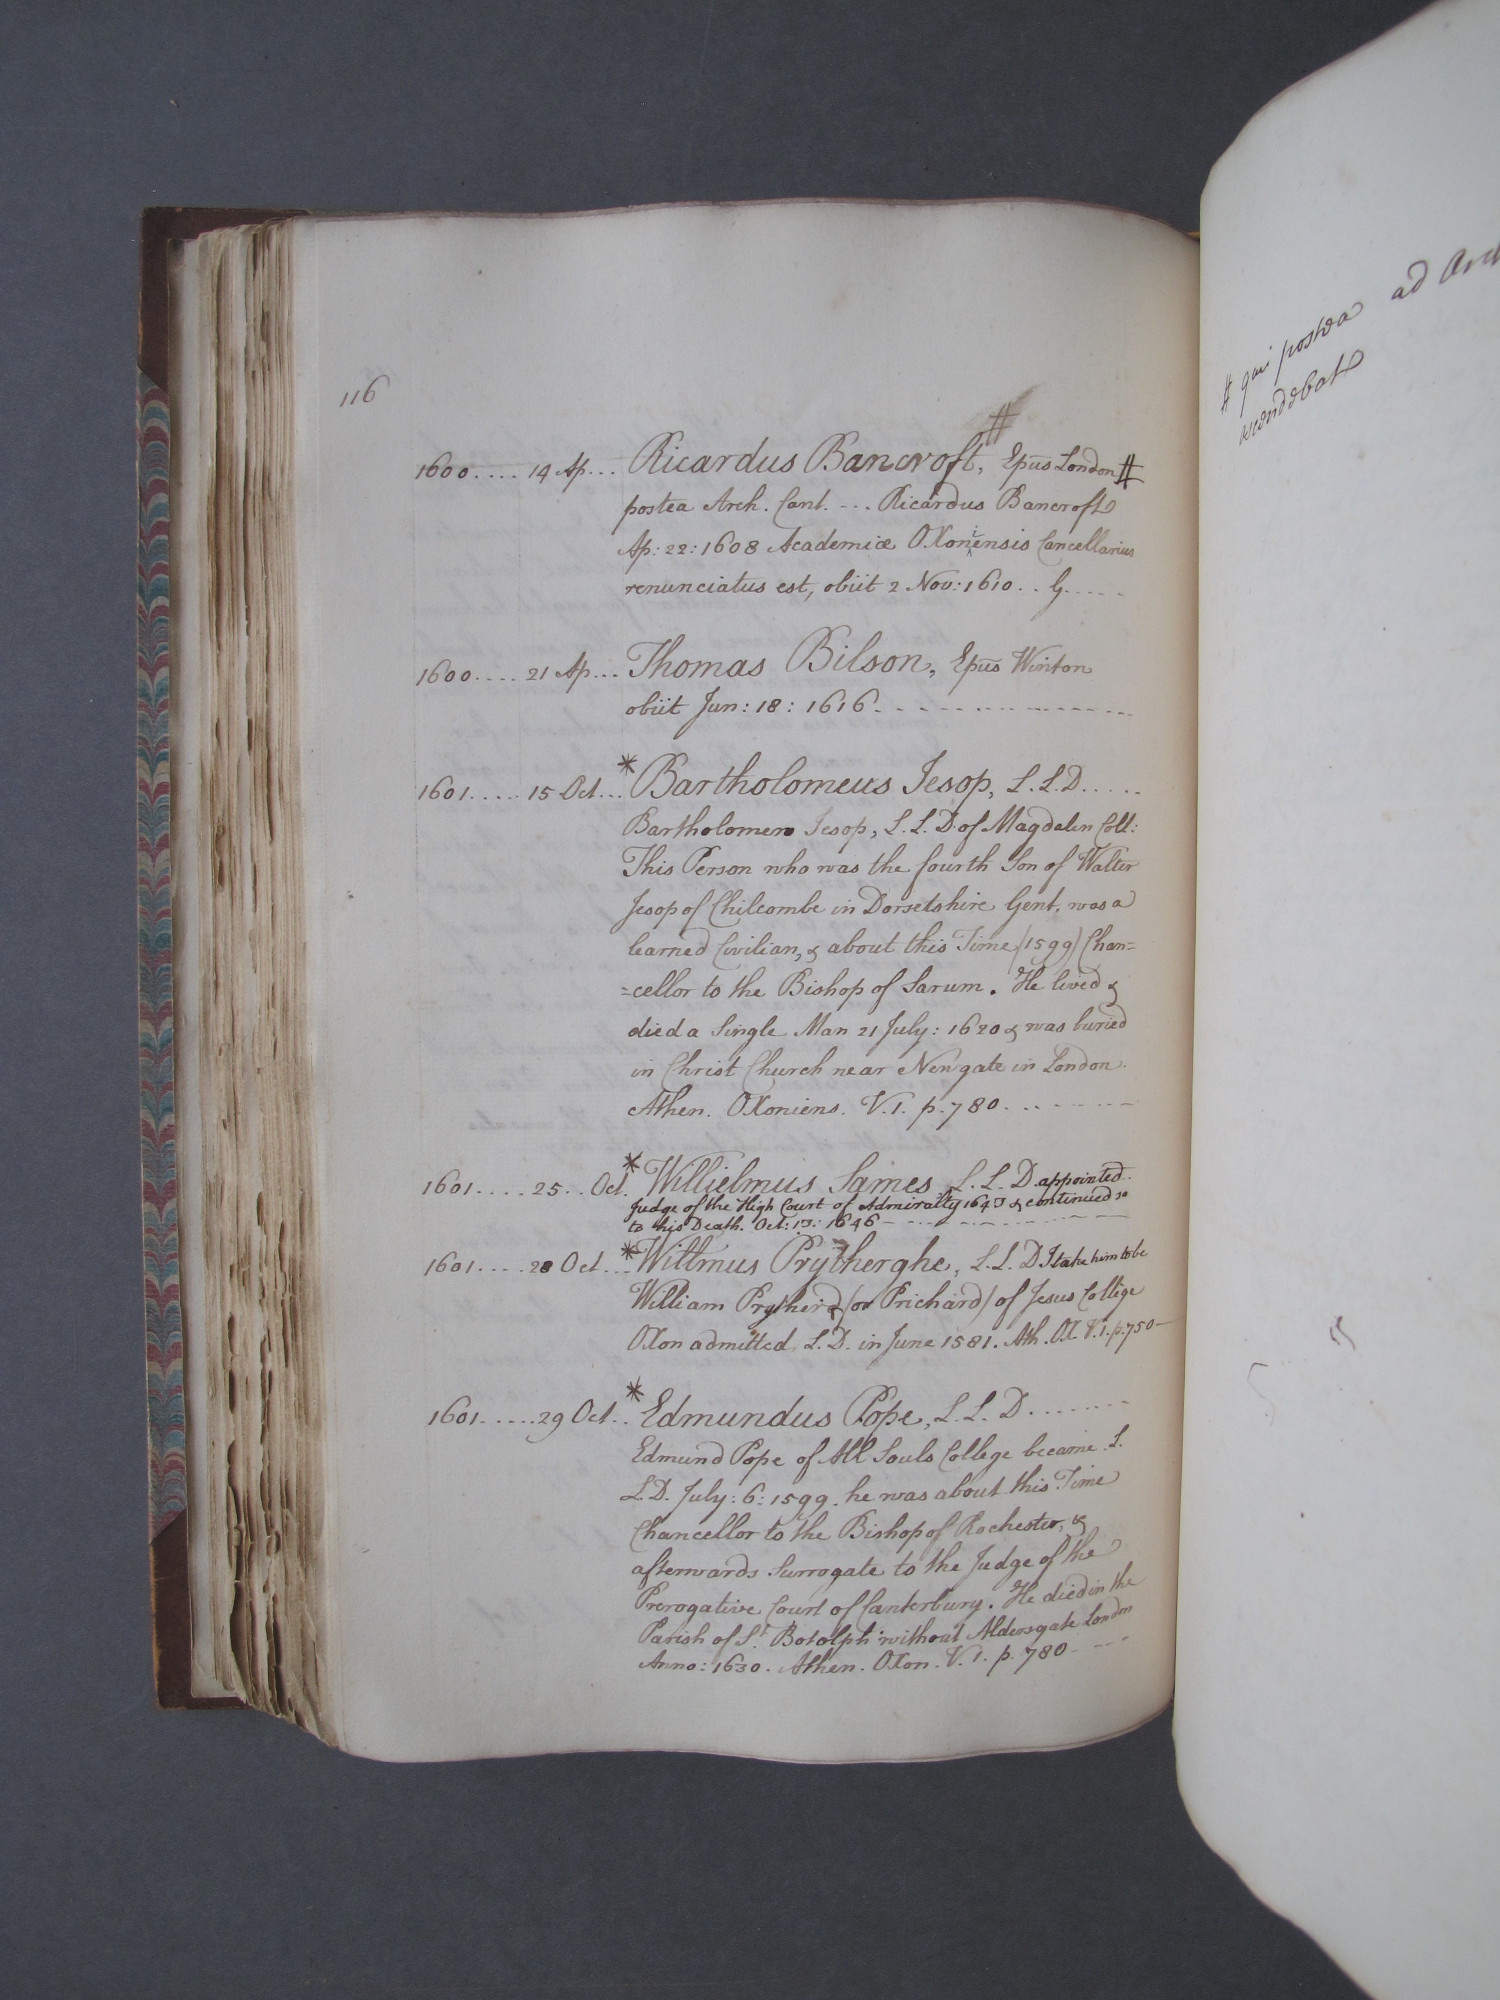 116
1600.... 14 Ap... Ricardus Bancroft,# Epũs London #
postea Arch. Cant. --. Ricardus Bancroft
Ap: 22: 1608 Academiæ OXoniensis Cancellarius
renunciatus est, obiit 2 Nov: 1610.. G.....
1600.... 21 Ap... Thomas Bilson, Epũs Winton
obiit Jun: 18: 1616. - - - - - - - - - -
1601..... 15 Oct... *Bartholomeus Jesop, L.L.D.....
Bartholomew Jesop, L.L.D. of Magdalen Coll:
This Person who was the fourth Son of Walter
Jesop of Chilcombe in Dorsetshire Gent. was a
learned Civilian, & about this Time (1599) Chan=
=cellor to the Bishop of Sarum. He lived &
died a Single Man 21 July: 1620 & was buried
in Christ Church near Newgate in London.
Athen. OXoniens. V.1. p.780. - - - - - -
1601.... 25.. Oct. *Willielmus Sames L.L.D. appointed
Judge of the High Court of Admiralty 1643 & continued so
to his Death. Oct: 13: 1646 - - - - - -
1601.... 28 Oct... *Willmus Prytherghe, L.L.D I take him to be
William Prytherd (or Prichard) of Jesus College
OXon admitted L.D. in June 1581. Ath. OX. V.1. p.750 -
1601..... 29 Oct.. *Edmundus Pope, L.L.D.......
Edmund Pope of All Souls College became L.
L.D. July: 6: 1599. he was about this Time
Chancellor to the Bishop of Rochester, &
afterwards Surrogate to the Judge of the
Prerogative Court of Canterbury. He died in the
Parish of St. Botolph without Aldersgate London
Anno: 1630. Athen. OXon. V.1. p. 780 - - -
# qui postea ad